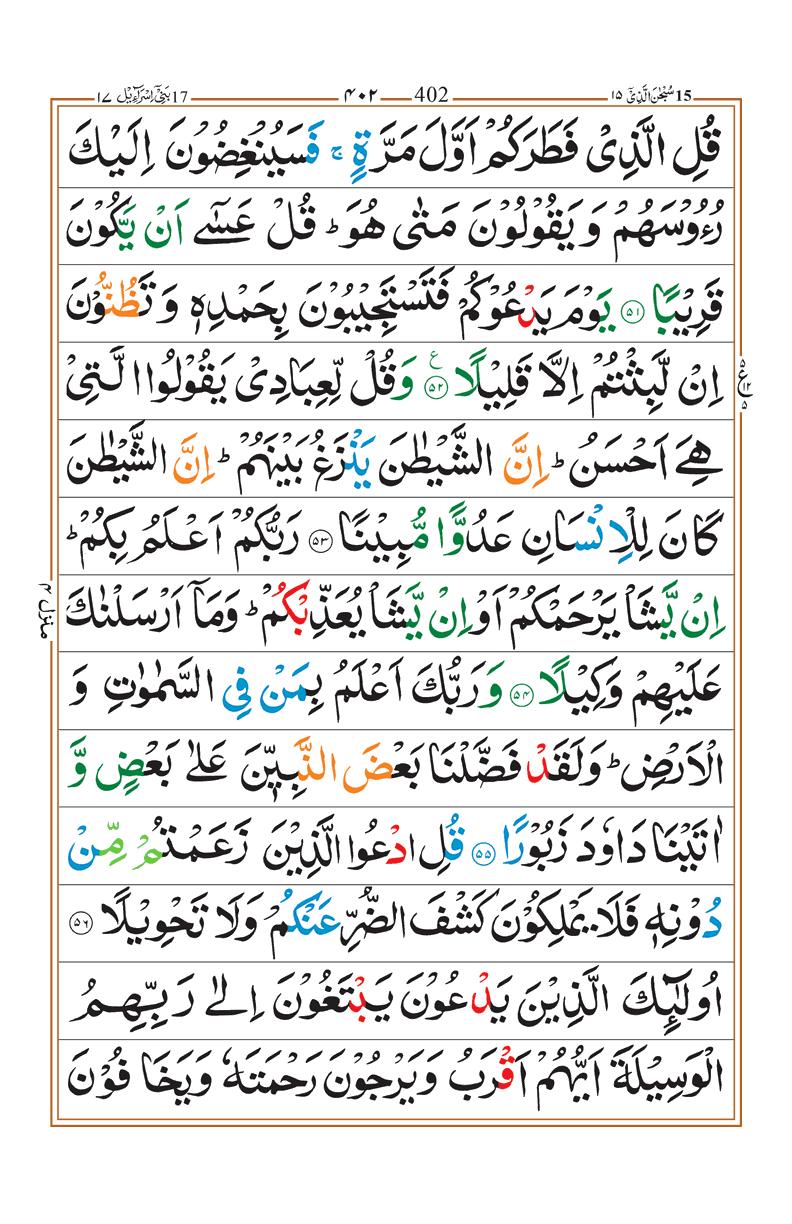 15 سُبْحٰنَ الَّذِیْٓ ١٥
402 ٤٠٢
17 بَنِیْٓ اِسْرَآءِیْل ١٧
قُلِ الَّذِیْ فَطَرَكُمْ اَوَّلَ مَرَّةٍ ۚ فَسَیُنْغِضُوْنَ اِلَیْكَ
رُءُوْسَهُمْ وَ یَقُوْلُوْنَ مَتٰی هُوَ ؕ قُلْ عَسٰۤی اَنْ یَّكُوْنَ
قَرِیْبًا ﴿۵۱﴾ یَوْمَ یَدْعُوْكُمْ فَتَسْتَجِیْبُوْنَ بِحَمْدِهٖ وَ تَظُنُّوْنَ
اِنْ لَّبِثْتُمْ اِلَّا قَلِیْلًا ﴿۵۲﴾ ع وَقُلْ لِّعِبَادِیْ یَقُوْلُوا الَّتِیْ
۵ ع ۱۲ ۵
هِیَ اَحْسَنُ ؕ اِنَّ الشَّیْطٰنَ یَنْزَغُ بَیْنَهُمْ ؕ اِنَّ الشَّیْطٰنَ
كَانَ لِلْاِنْسَانِ عَدُوًّا مُّبِیْنًا ﴿۵۳﴾ رَبُّكُمْ اَعْلَمُ بِكُمْ ؕ
اِنْ یَّشَاْ یَرْحَمْكُمْ اَوْ اِنْ یَّشَاْ یُعَذِّبْكُمْ ؕ وَمَاۤ اَرْسَلْنٰكَ
منزل ۴
عَلَیْهِمْ وَكِیْلًا ﴿۵۴﴾ وَ رَبُّكَ اَعْلَمُ بِمَنْ فِی السَّمٰوٰتِ وَ
الْاَرْضِ ؕ وَلَقَدْ فَضَّلْنَا بَعْضَ النَّبِیّٖنَ عَلٰی بَعْضٍ وَّ
اٰتَیْنَا دَاوٗدَ زَبُوْرًا ﴿۵۵﴾ قُلِ ادْعُوا الَّذِیْنَ زَعَمْتُمْ مِّنْ
دُوْنِهٖ فَلَا یَمْلِكُوْنَ كَشْفَ الضُّرِّ عَنْكُمْ وَلَا تَحْوِیْلًا ﴿۵۶﴾
اُولٰٓئِكَ الَّذِیْنَ یَدْعُوْنَ یَبْتَغُوْنَ اِلٰی رَبِّهِمُ
الْوَسِیْلَةَ اَیُّهُمْ اَقْرَبُ وَیَرْجُوْنَ رَحْمَتَهٗ وَیَخَافُوْنَ